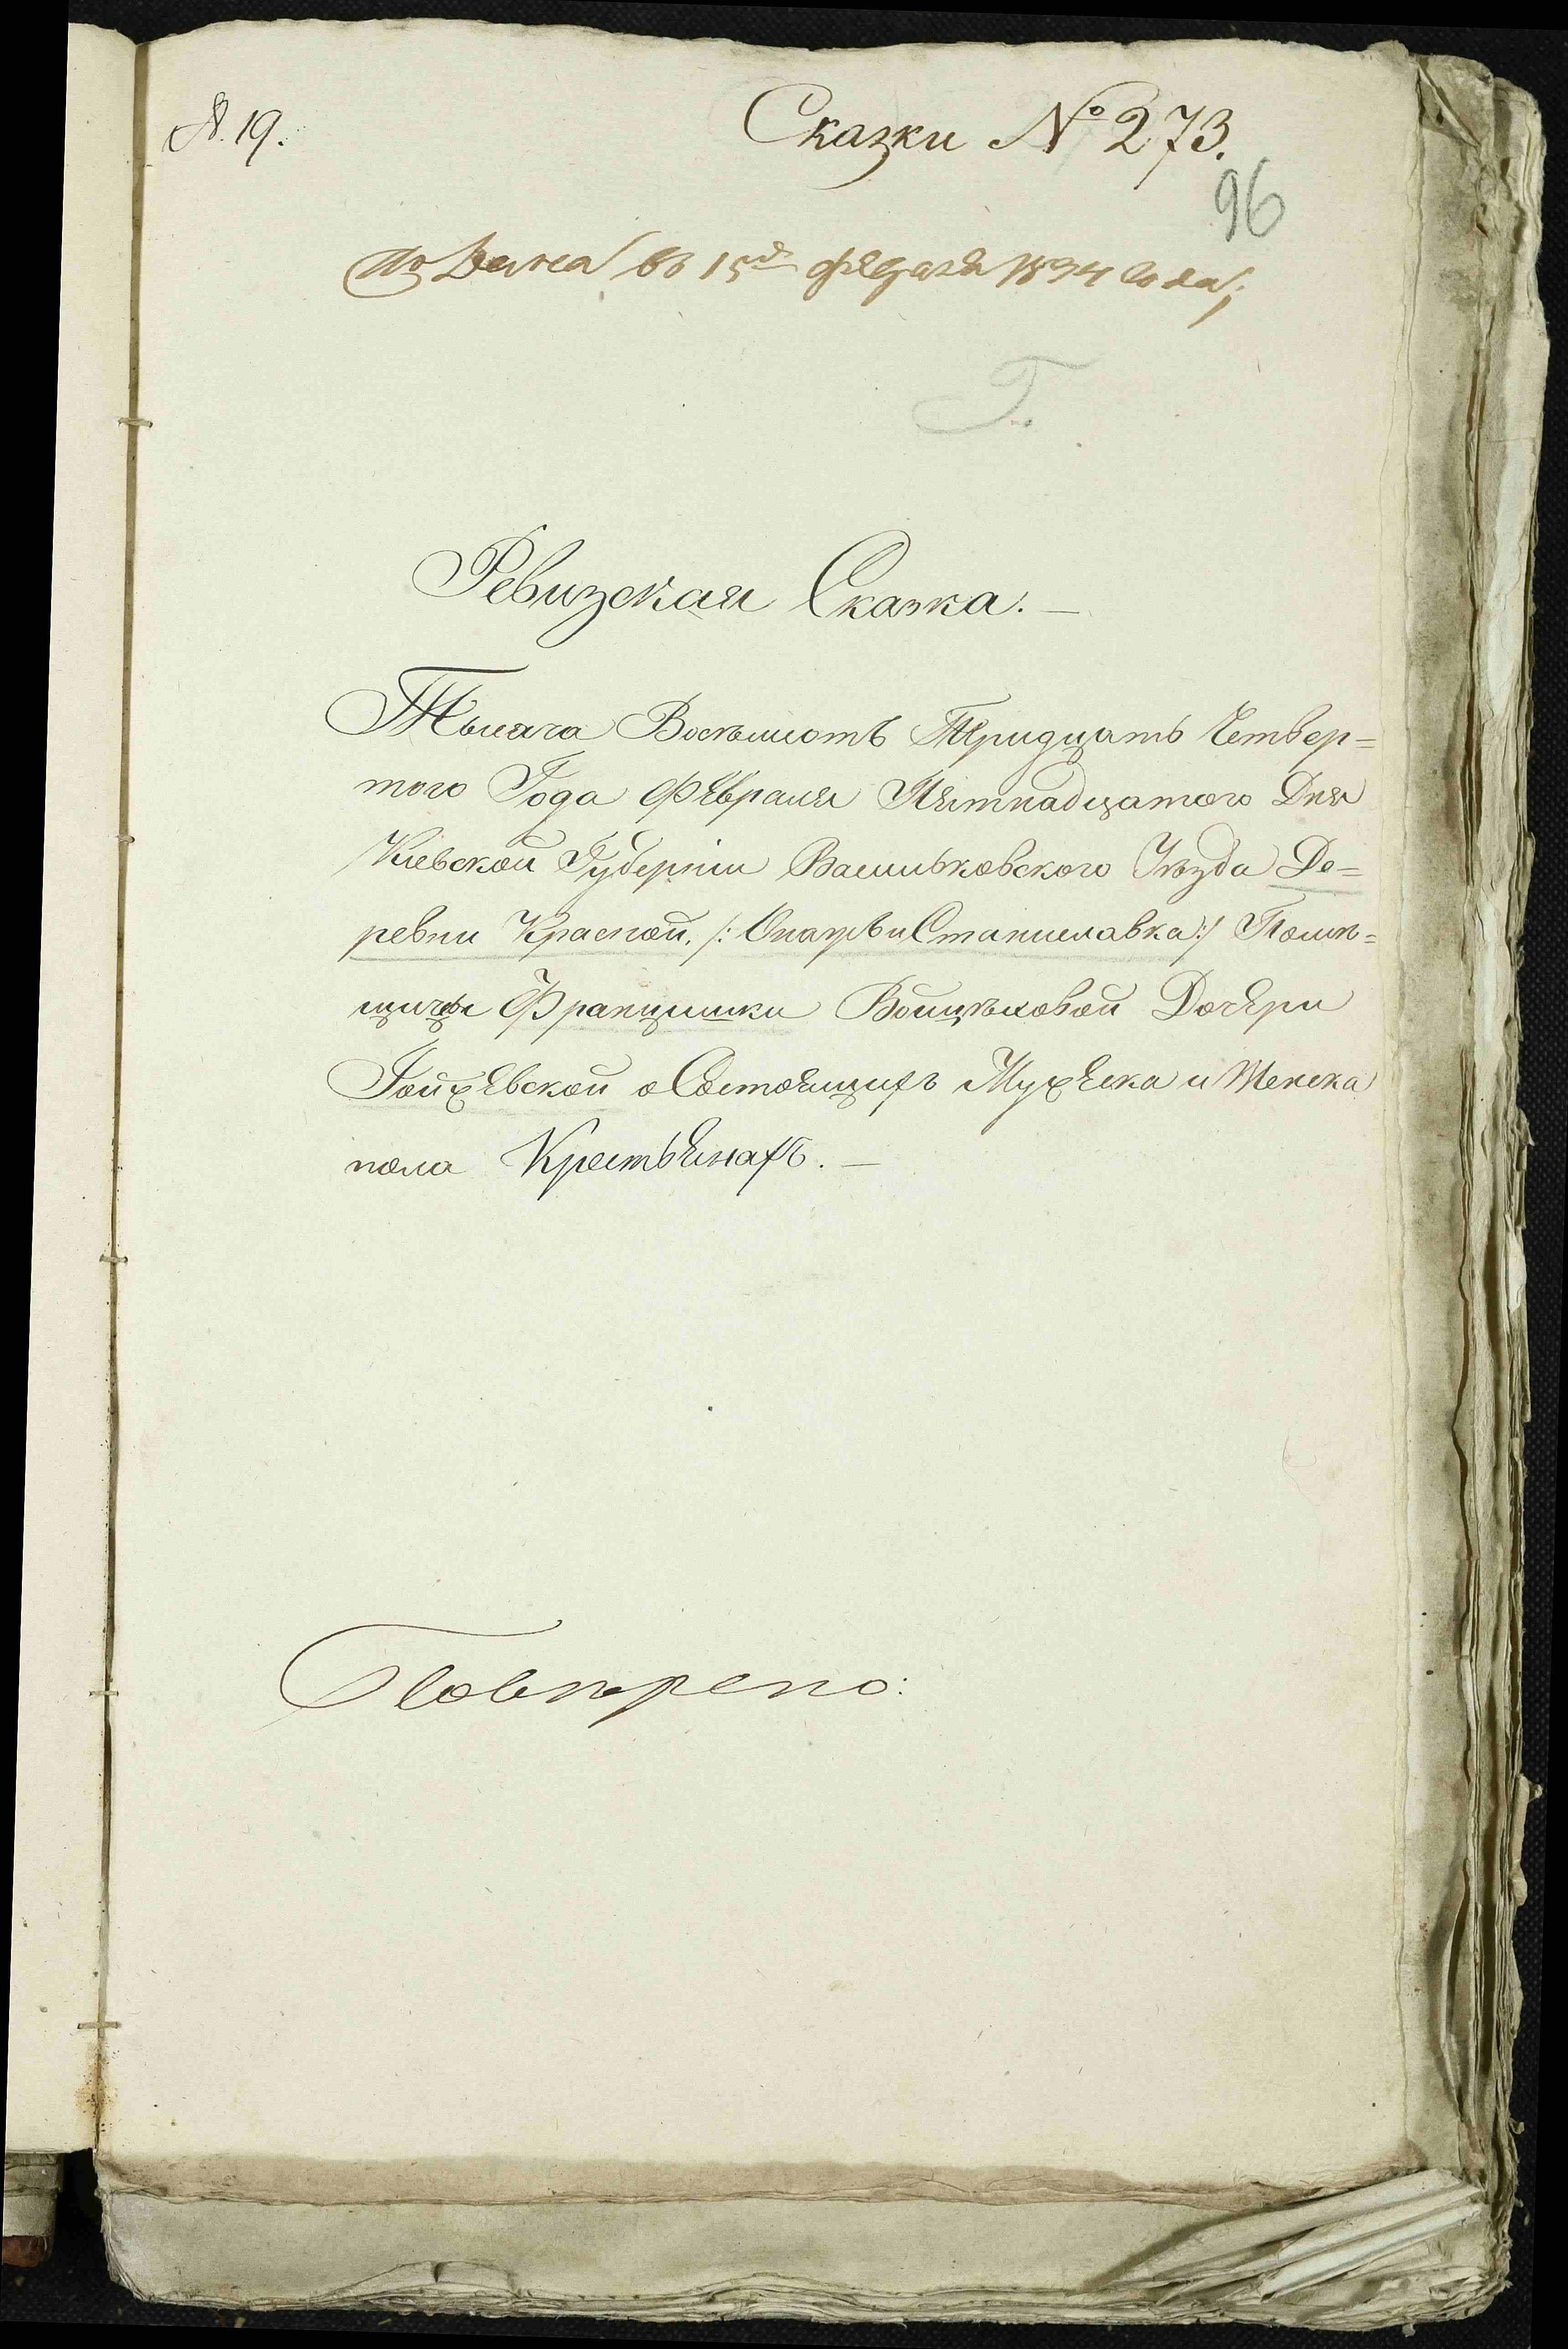 №. 19.
Сказки № 273.
96
Подана въ 15й февраля 1834 года;
Г.
Ревизская Сказка. —
Тысяча Восемьсотъ Тридцать Четвер=
того Года Февраля Пятнадцатого Дня
Кіевской Губерніи Васильковского Уѣзда Де=
ревни Красной. /: Станиславка :/ Помѣ=
щицы Францишки Войцѣховой Дочери
Гойжевской о Состоящихъ Мужеска и Женска
пола Крестьянахъ. —